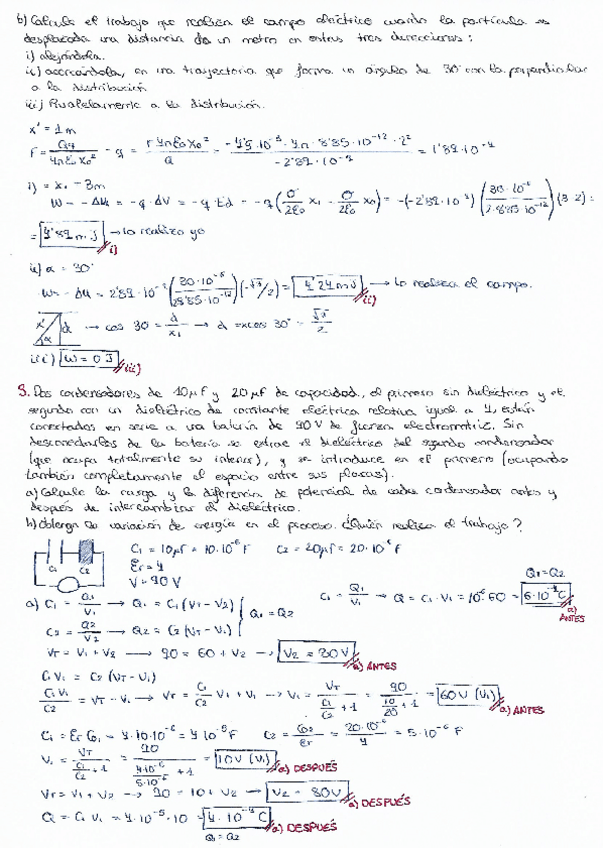 b) Calcule el trabajo que realiza el campo eléctrico cuando la partícula es
desplazada una distancia de un metro en estas tres direcciones:
i) alejándola.
ii) acercándola, en una trayectoria que forma un ángulo de 30° con la perpendicular
a la distribución
iii) Paralelamente a la distribución.
x' = 1 m
i) = x₁ - 3m
W = -ΔU = -q·ΔV = -q·Ed = -q (σ/2ε₀ x₁ - σ/2ε₀ x₀) =
→ lo realizo yo
i)
ii) α = 30°
→ lo realiza el campo.
ii)
→ cos 30 = d/x₁ → d = x cos 30° = √3/2
iii) W = 0 J iii)
3. Dos condensadores de 10µf y 20µf de capacidad, el primero sin dieléctrico y el
segundo con un dieléctrico de constante eléctrica relativa igual a 4, están
conectados en serie a una batería de 90 V de fuerza electromotriz. Sin
desconectarlos de la batería se extrae el dieléctrico del segundo condensador
(que ocupa totalmente su interior), y se introduce en el primero (ocupando
también completamente el espacio entre sus placas).
a) Calcule la carga y la diferencia de potencial de cada condensador antes y
después de intercambiar el dieléctrico.
b) Obtenga la variación de energía en el proceso. ¿Quién realiza el trabajo?
C1 = 10µf = 10·10⁻⁶ F C2 = 20µf = 20·10⁻⁶ F
Er = 4
V = 90 V
C1 C2
Q1 = Q2
a) C1 = Q1/V1 → Q1 = C1 (VT - V2)
C1 = Q1/V1 → Q = C1·V1 =
a) ANTES
C2 = Q2/V2 → Q2 = C2 (VT - V1)
Q1 = Q2
VT = V1 + V2 → 90 = 60 + V2 → V2 = 30V a) ANTES
C1 V1 = C2 (VT - V1)
C1 V1/C2 = VT - V1 → VT = C1/C2 V1 + V1 → V1 = VT/(C1/C2 + 1) = 90/(10/20 + 1) = 60V (V1) a) ANTES
C1 = Er C01 = 4·10·10⁻⁶ = 4·10⁻⁵ F C2 = C02/Er = 20·10⁻⁶/4 = 5·10⁻⁶ F
= 10V (V1) a) DESPUÉS
VT = V1 + V2 → 90 = 10 + V2 → V2 = 80V a) DESPUÉS
Q = C1 V1 = 4·10⁻⁵·10 = 4·10⁻⁴ C a) DESPUÉS
Q1 = Q2